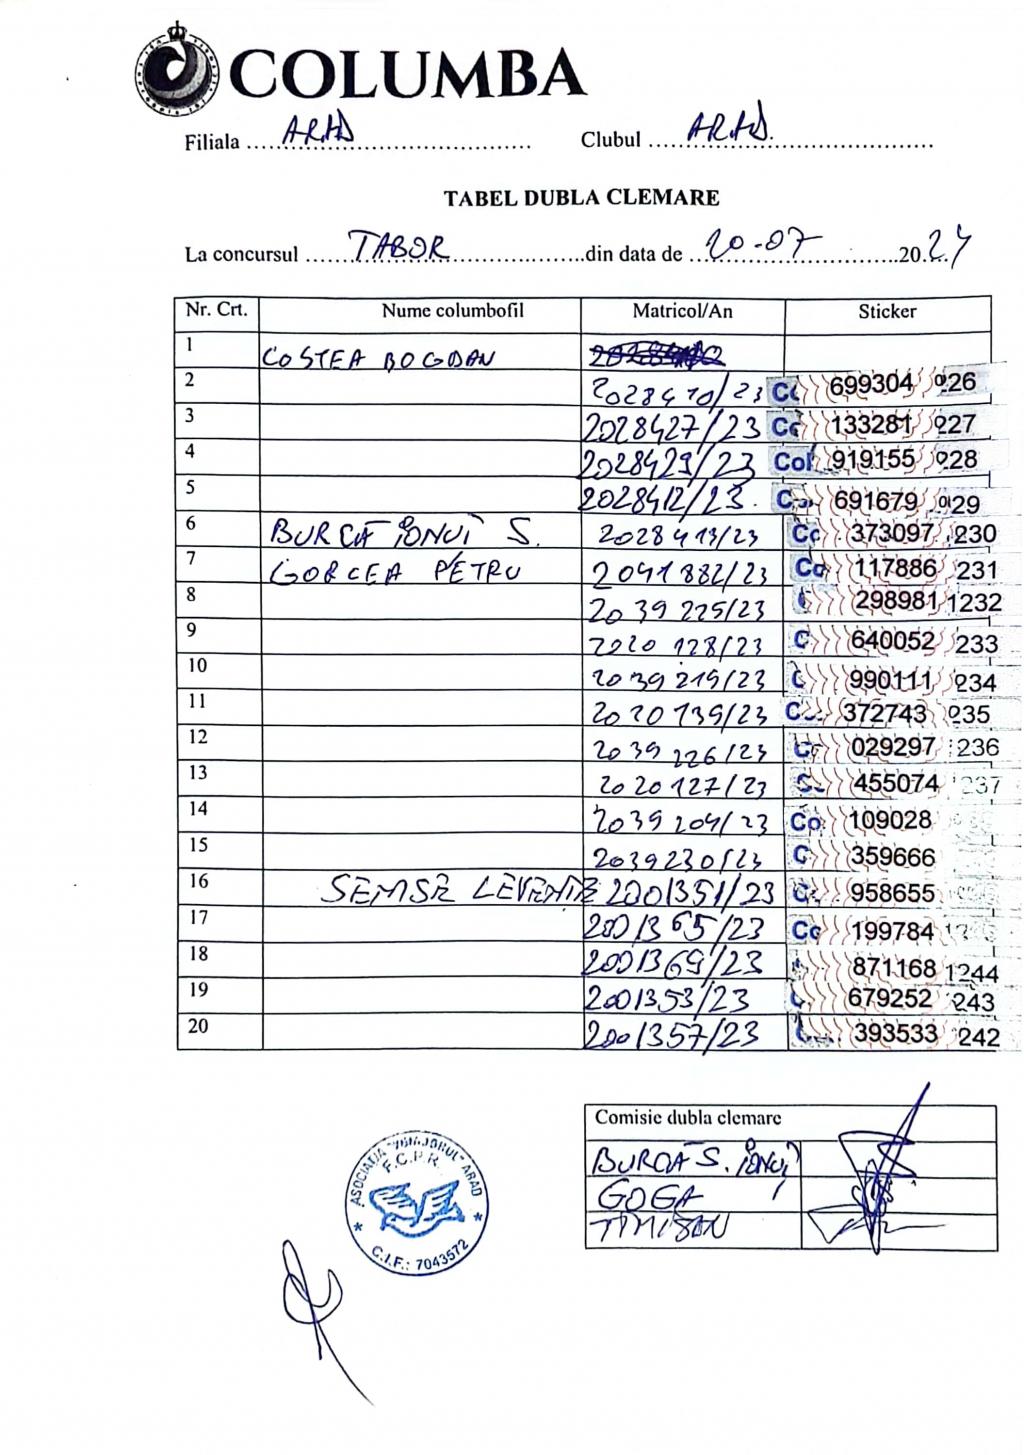 COLUMBA
Filiala ARAD Clubul ARAD
TABEL DUBLA CLEMARE
La concursul TABOR din data de 20-07 2024
Nr. Crt. Nume columbofil Matricol/An Sticker
1 COSTEA BOGDAN
2 2028410/23 699304 026
3 2028427/23 133281 027
4 2028429/23 Col 919155 028
5 2028412/23. 691679 029
6 BURCĂ IONUȚ S. 2028413/23 Co 373097 230
7 GORCEA PETRU 2041882/23 Co 117886 231
8 2039225/23 298981 1232
9 2020128/23 C 640052 233
10 2039219/23 C 990111 034
11 2020139/23 372743 035
12 2039226/23 029297 236
13 2020127/23 455074 237
14 2039209/23 Co 109028
15 2039230/23 C 359666
16 LEVENTE 2001351/23 958655
17 2001365/23 Co 199784
18 2001369/23 871168 1244
19 2001353/23 679252 243
20 2001357/23 393533 242
Comisie dubla clemare
BURCĂ S. IONUȚ
GOGA
TIMISAN
ARAD
F.C.P.R.
C.I.F.: 7043572